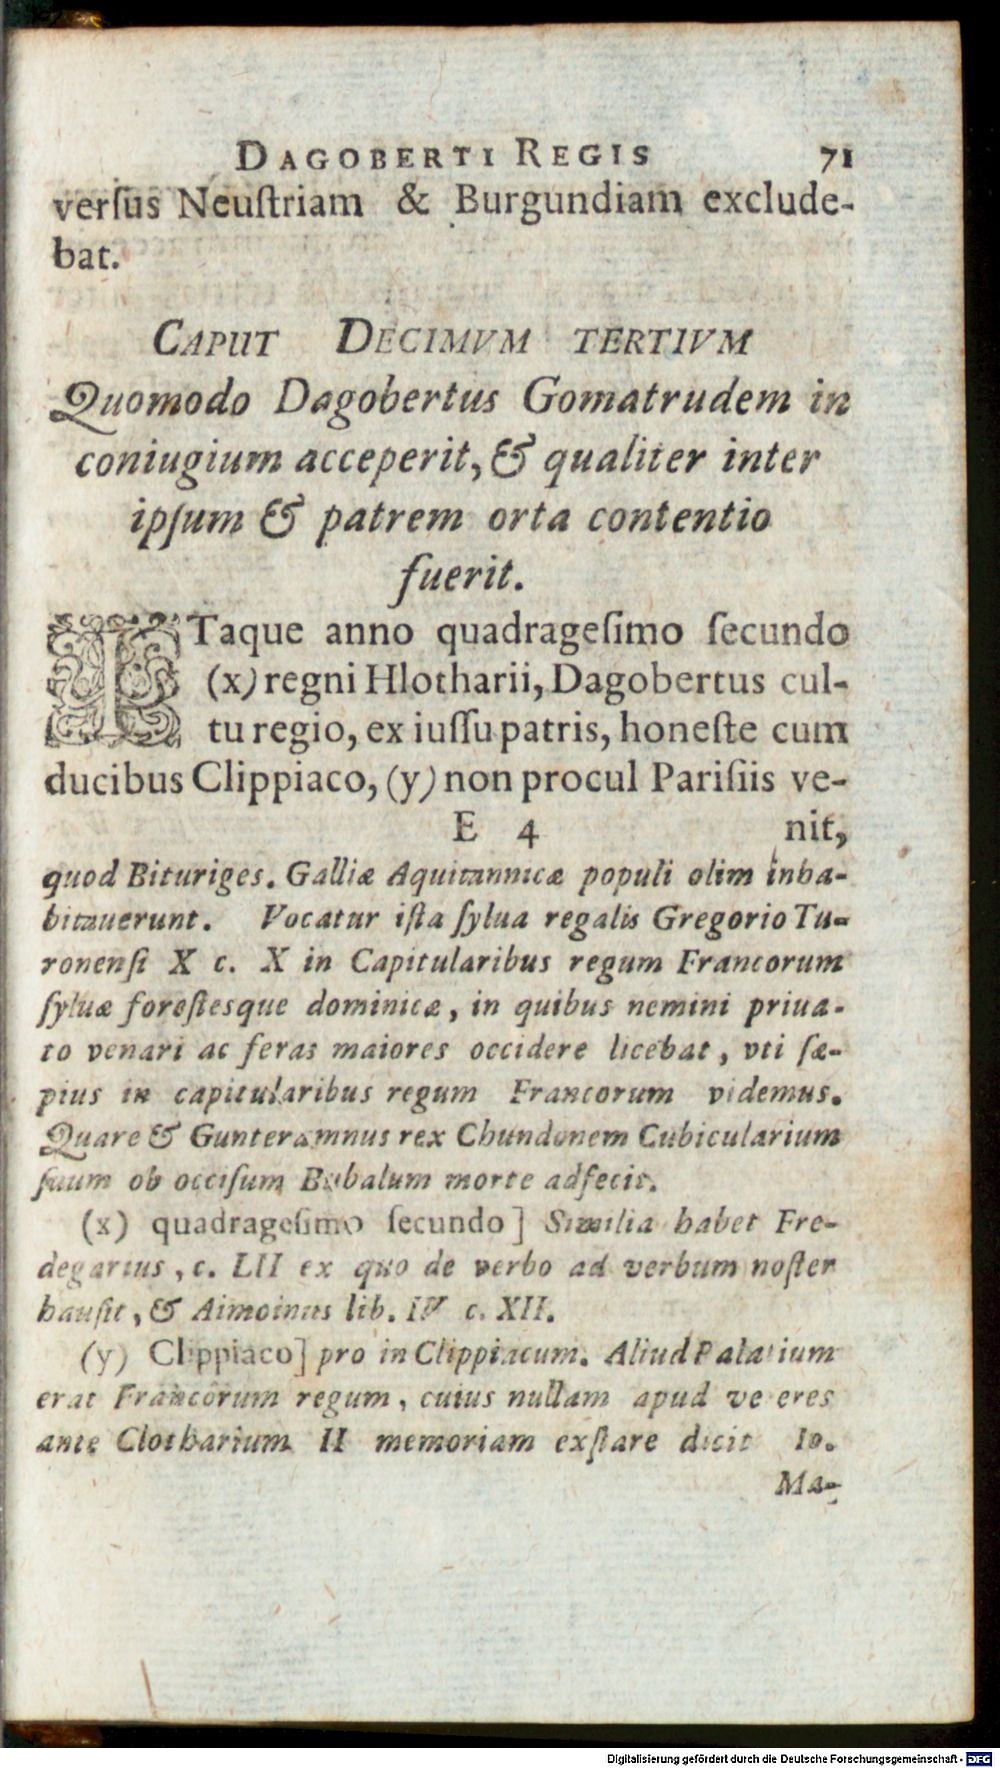 DAGOBERTI REGIS 71
verſus Neuſtriam & Burgundiam exclude-
bat.
CAPUT DECIMVM TERTIVM
Quomodo Dagobertus Gomatrudem in
coniugium acceperit, & qualiter inter
ipſum & patrem orta contentio
fuerit.
ITaque anno quadrageſimo ſecundo
(x) regni Hlotharii, Dagobertus cul-
tu regio, ex iuſſu patris, honeſte cum
ducibus Clippiaco, (y) non procul Pariſiis ve-
E 4 nit,
quod Bituriges. Galliæ Aquitannicæ populi olim inha-
bitauerunt. Vocatur iſta ſylua regalis Gregorio Tu-
ronenſi X c. X in Capitularibus regum Francorum
ſyluæ foreſtesque dominicæ, in quibus nemini priua-
to venari ac feras maiores occidere licebat, vti ſæ-
pius in capitularibus regum Francorum videmus.
Quare & Gunteramnus rex Chundonem Cubicularium
ſuum ob occiſum Bubalum morte adfecit.
(x) quadrageſimo ſecundo] Similia habet Fre-
degarius, c. LII ex quo de verbo ad verbum noſter
hauſit, & Aimoinus lib. IV c. XII.
(y) Clippiaco] pro in Clippiacum. Aliud Palatium
erat Francorum regum, cuius nullam apud veteres
ante Clotharium II memoriam exſtare dicit Io.
Ma-
Digitalisierung gefördert durch die Deutsche Forschungsgemeinschaft - DFG